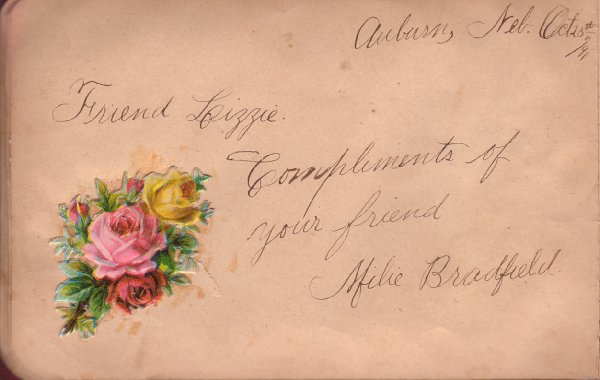 Auburn, Neb. Oct 25th
/91
Friend Lizzie.
Compliments of
your friend
Milie Bradfield.